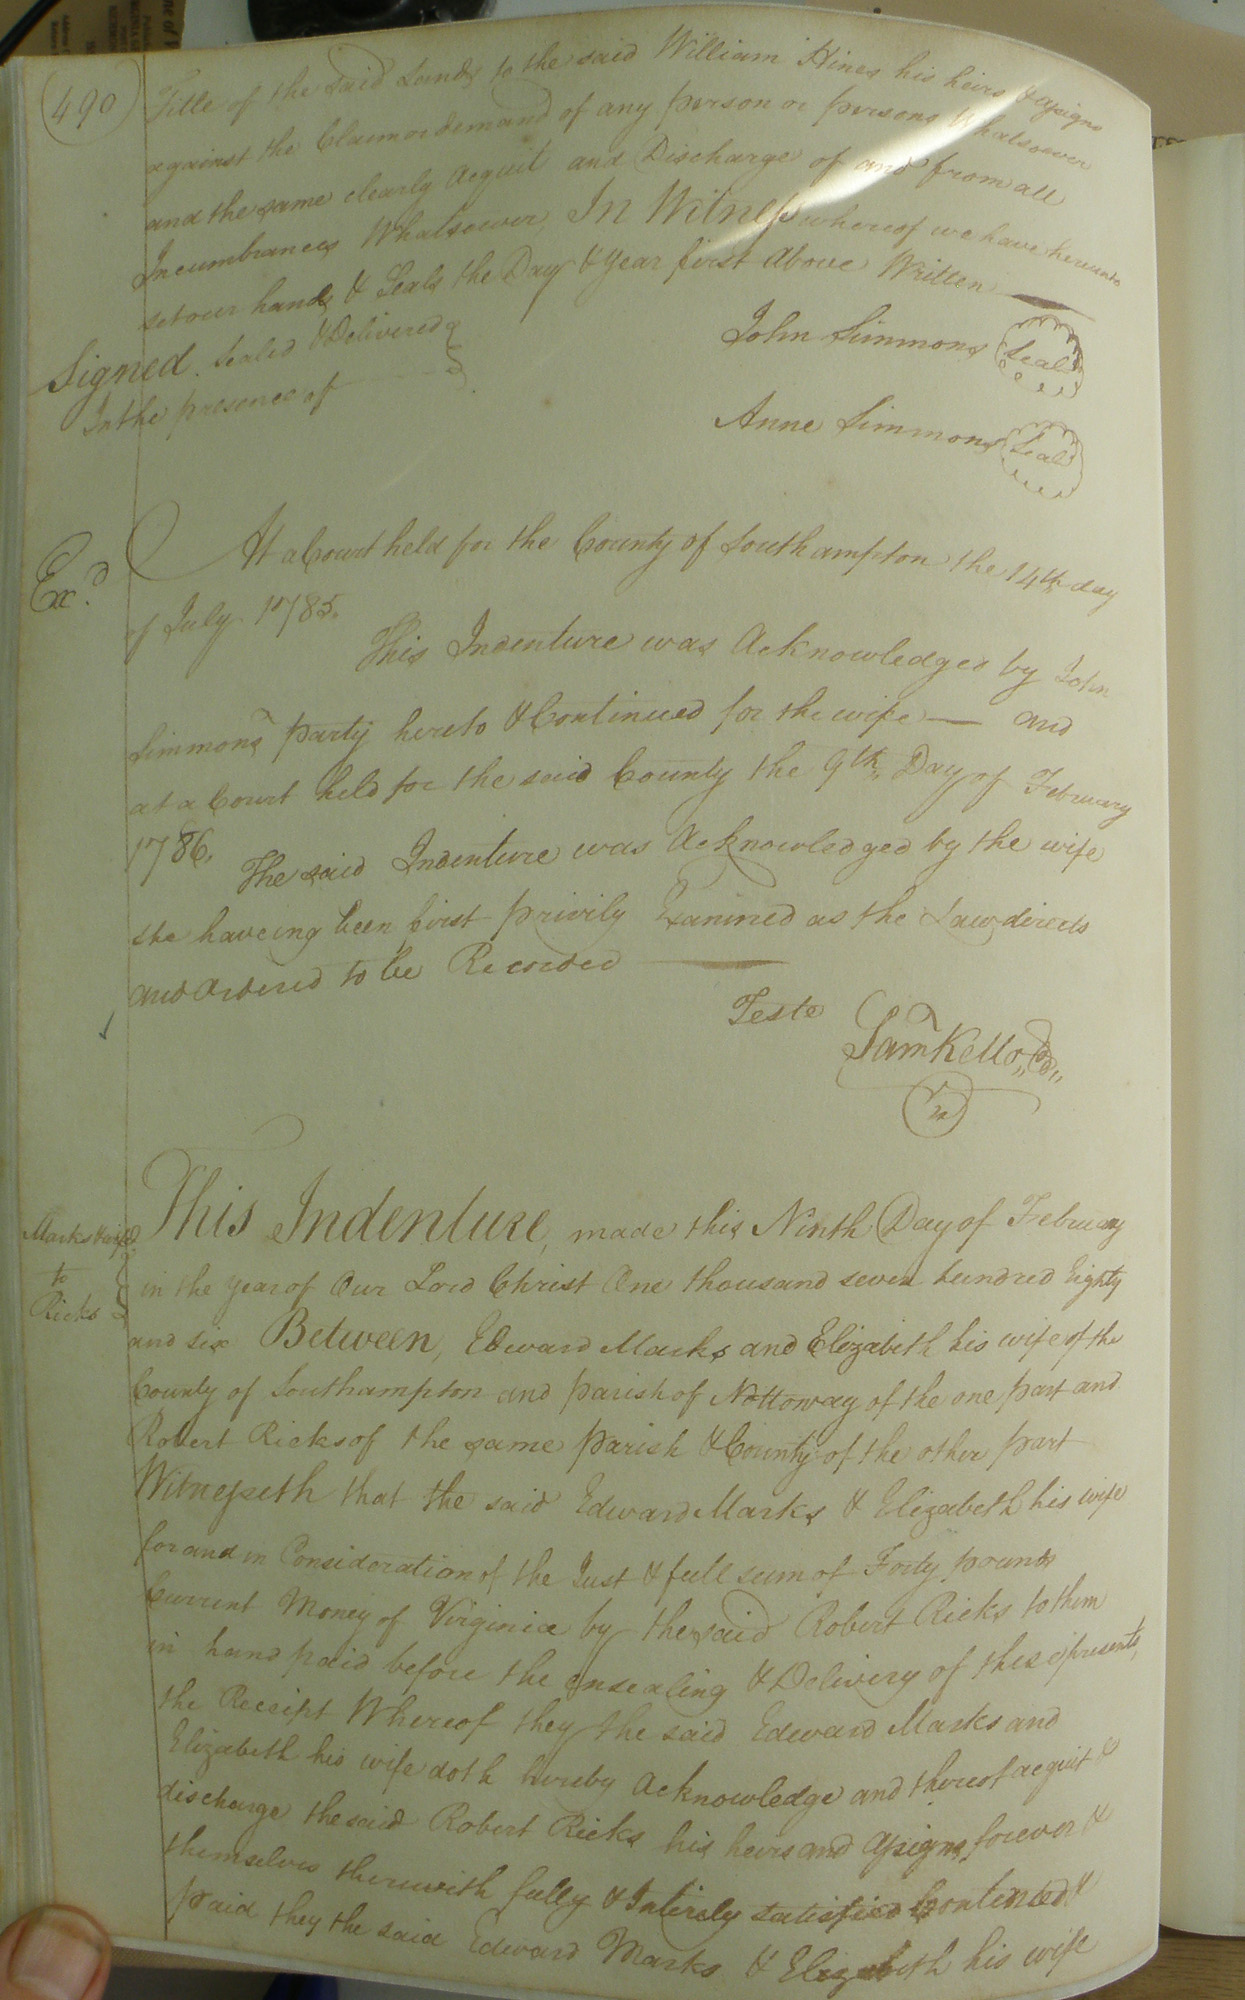 490
Title of the said Lands to the said William Hines his heirs & assigns
against the Claim or demand of any person or persons Whatsoever
and the same clearly Acquit and Discharge of and from all
Incumbrances Whatsoever, In Witness whereof we have hereunto
set our hands & Seals the Day & Year first Above Written
Signed. Sealed & Delivered
In the presence of
John Simmons Seal
Anne Simmons Seal
Exd.
At a Court held for the County of Southampton the 14th day
of July 1785.
This Indenture was Acknowledged by John
Simmons party hereto & Continued for the wife — And
at a Court held for the said County the 9th,, Day of February
1786.
The said Indenture was Acknowledged by the wife
she haveing been first privily Examined as the Law directs
and Ordered to be Recorded
Teste
Sam Kello,,
Marks & wife
to
Ricks
This Indenture, made this Ninth Day of February
in the year of Our Lord Christ One thousand seven hundred Eighty
and six Between, Edward Marks and Elizabeth his wife of the
County of Southampton and parish of Nottoway of the one part and
Robert Ricks of the same parish & County of the other part
Witnesseth that the said Edward Marks & Elizabeth his wife
for and in Consideration of the Just & full sum of Forty pounds
Current Money of Virginia by the said Robert Ricks to them
in hand paid before the ensealing & Delivery of these presents,
the Receipt Whereof they the said Edward Marks and
Elizabeth his wife doth hereby Acknowledge and thereof acquit &
discharge the said Robert Ricks his heirs and Assigns forever &
themselves therewith fully & Intirely satisfied Contented &
paid they the said Edward Marks & Elizabeth his wife